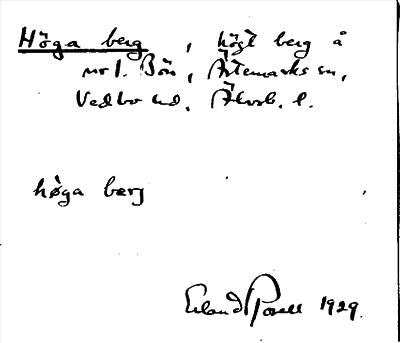 Höga berg, högt berg å
nr 1. Bön, Ärtemarks sn,
Vedbo hd, Älvsb. l.
höga bærj
Erland Rosell 1929.